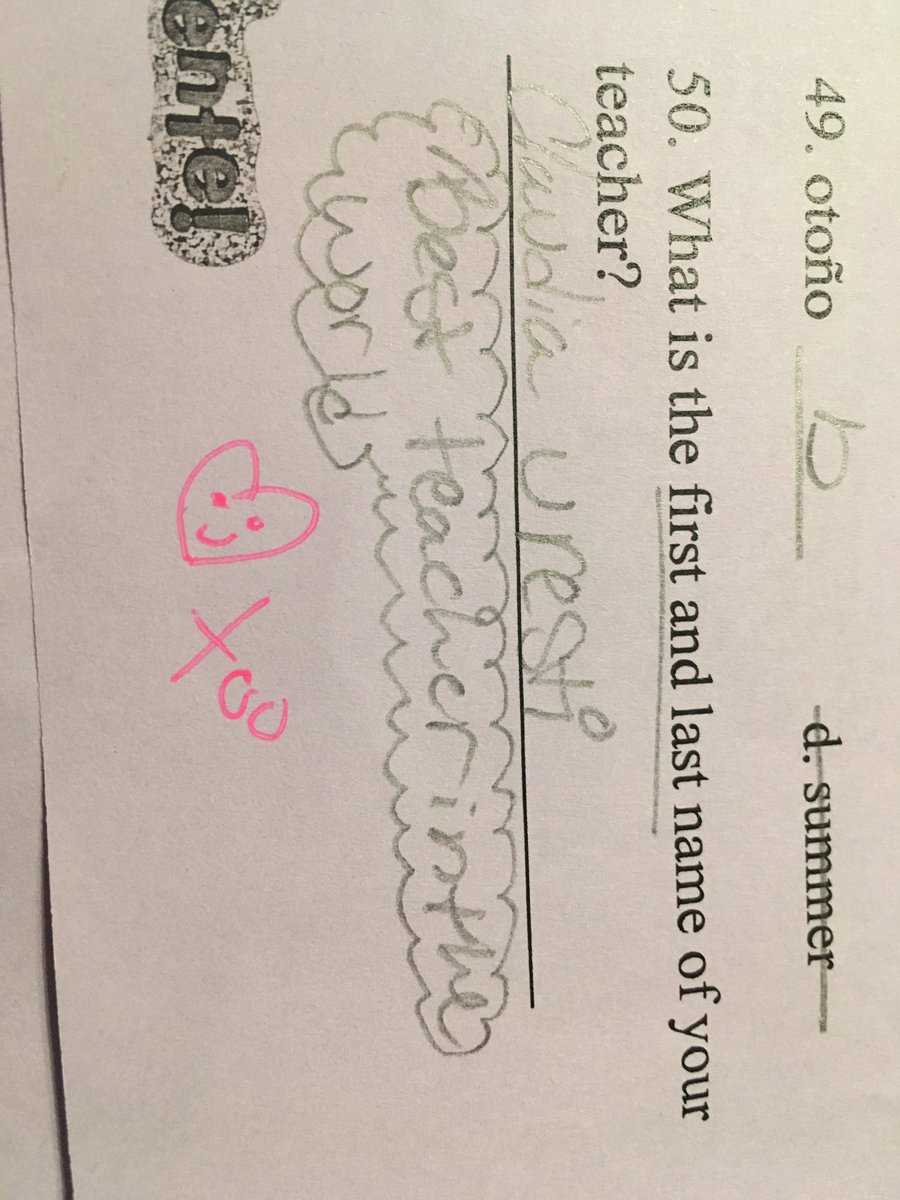 49. otoño b d. summer
50. What is the first and last name of your
teacher?
Claudia Uresti
Best teacher in the
world
Xoo
ente!